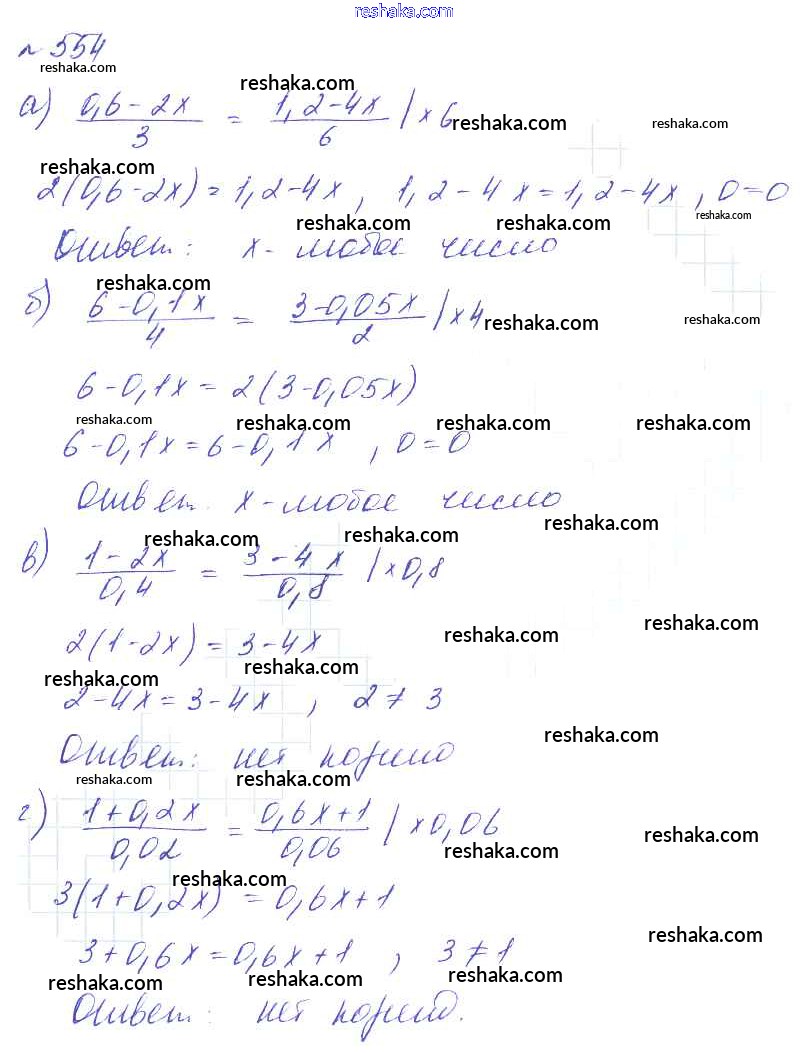 reshaka.com
№ 554
reshaka.com
reshaka.com
а) (0,6-2x)/3 = (1,2-4x)/6 |×6
reshaka.com reshaka.com
reshaka.com
2(0,6-2x)=1,2-4x, 1,2-4x=1,2-4x, 0=0
reshaka.com reshaka.com reshaka.com
Ответ: x- любое число
reshaka.com
б) (6-0,1x)/4 = (3-0,05x)/2 |×4
reshaka.com reshaka.com
6-0,1x=2(3-0,05x)
reshaka.com reshaka.com reshaka.com reshaka.com
6-0,1x=6-0,1x, 0=0
Ответ. x-любое число
reshaka.com reshaka.com reshaka.com
в) (1-2x)/0,4 = (3-4x)/0,8 |×0,8
reshaka.com reshaka.com
2(1-2x)=3-4x
reshaka.com reshaka.com
2-4x=3-4x, 2≠3
reshaka.com
Ответ: нет корней
reshaka.com reshaka.com
г) (1+0,2x)/0,02 = (0,6x+1)/0,06 |×0,06
reshaka.com reshaka.com
reshaka.com
3(1+0,2x)=0,6x+1
reshaka.com
3+0,6x=0,6x+1, 3≠1
reshaka.com reshaka.com reshaka.com
Ответ: нет корней.